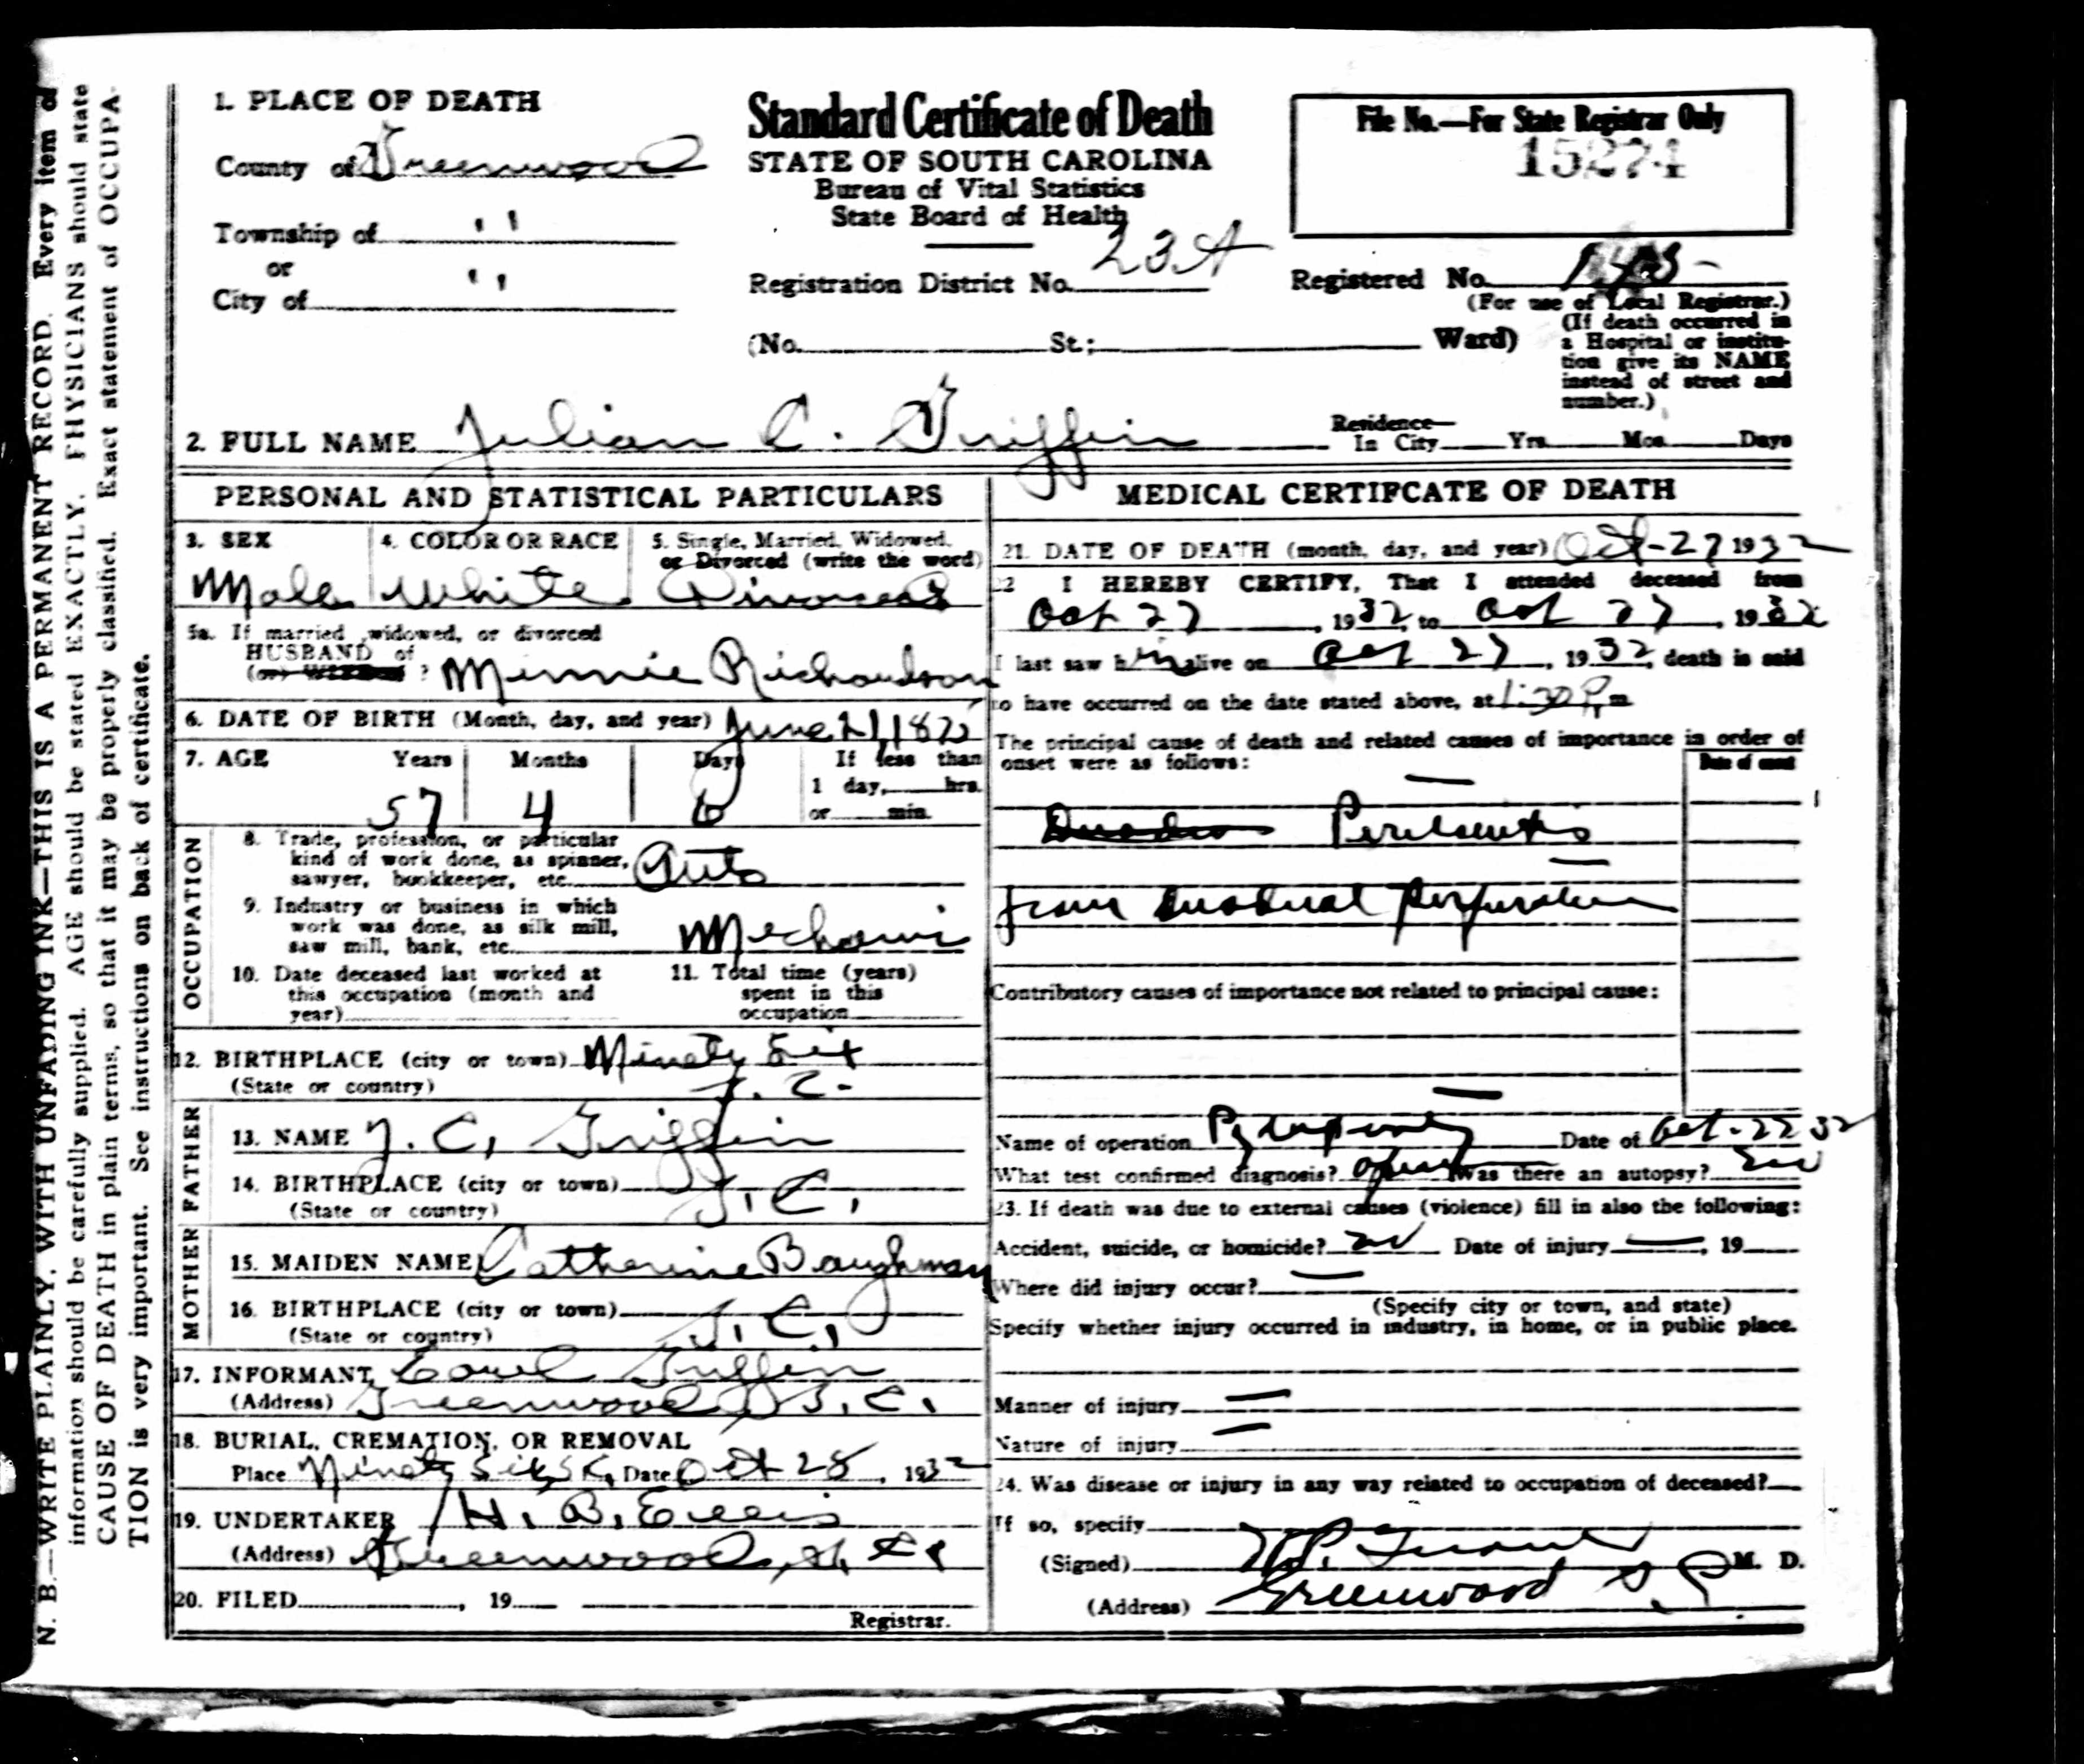 1. PLACE OF DEATH
County of Greenwood
Township of "
or
City of "
Standard Certificate of Death
STATE OF SOUTH CAROLINA
Bureau of Vital Statistics
State Board of Health
Registration District No. 23A
File No.—For State Registrar Only
15274
Registered No.
(For use of Local Registrar.)
(No. St.; Ward)
(If death occurred in
a Hospital or institu-
tion give its NAME
instead of street and
number.)
2. FULL NAME Julian C. Griffin
Residence—
In City Yrs. Mos. Days
PERSONAL AND STATISTICAL PARTICULARS
3. SEX
Male
4. COLOR OR RACE
White
5. Single, Married, Widowed,
or Divorced (write the word)
Divorced
5a. If married, widowed, or divorced
HUSBAND of
(or) ? Minnie Richardson
6. DATE OF BIRTH (Month, day, and year) June 21, 187
7. AGE Years Months Days
57 4 6
If less than
1 day, hrs.
or min.
OCCUPATION
8. Trade, profession, or particular
kind of work done, as spinner,
sawyer, bookkeeper, etc. Auto
9. Industry or business in which
work was done, as silk mill,
saw mill, bank, etc. Mechanic
10. Date deceased last worked at
this occupation (month and
year)
11. Total time (years)
spent in this
occupation
12. BIRTHPLACE (city or town) Ninety Six
(State or country) S. C.
FATHER
13. NAME J. C. Griffin
14. BIRTHPLACE (city or town)
(State or country) S. C.
MOTHER
15. MAIDEN NAME Catherine Baughman
16. BIRTHPLACE (city or town)
(State or country) S. C.
17. INFORMANT Griffin
(Address) Greenwood S. C.
18. BURIAL, CREMATION, OR REMOVAL
Place Ninety Six, S.C. Date Oct 28, 1932
19. UNDERTAKER H. B. Ellis
(Address) Greenwood, S. C.
20. FILED , 19
Registrar.
MEDICAL CERTIFCATE OF DEATH
21. DATE OF DEATH (month, day, and year) Oct-27 1932
22 I HEREBY CERTIFY, That I attended deceased from
Oct 27, 1932, to Oct 27, 1932
I last saw him alive on Oct 27, 1932, death is said
to have occurred on the date stated above, at 1:30 P.m
The principal cause of death and related causes of importance in order of
onset were as follows:
Date of onset
Peritonitis
from duodenal perforation
Contributory causes of importance not related to principal cause:
Name of operation Date of Oct.-22 32
What test confirmed diagnosis? Was there an autopsy? no
23. If death was due to external causes (violence) fill in also the following:
Accident, suicide, or homicide? no Date of injury — , 19
Where did injury occur? —
(Specify city or town, and state)
Specify whether injury occurred in industry, in home, or in public place.
Manner of injury —
Nature of injury —
24. Was disease or injury in any way related to occupation of deceased?
If so, specify
(Signed) M. D.
(Address) Greenwood S.C.
N. B.—WRITE PLAINLY, WITH UNFADING INK—THIS IS A PERMANENT RECORD. Every item of
information should be carefully supplied. AGE should be stated EXACTLY. PHYSICIANS should state
CAUSE OF DEATH in plain terms, so that it may be properly classified. Exact statement of OCCUPA-
TION is very important. See instructions on back of certificate.